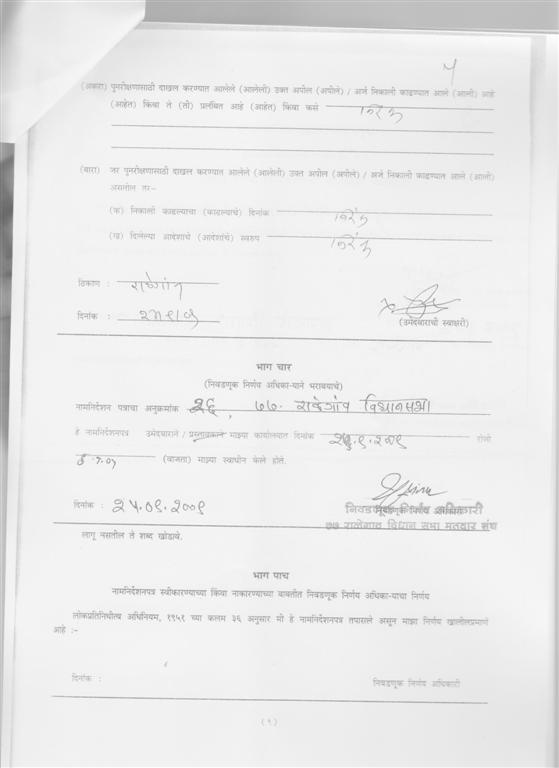 (अकरा) पुनरीक्षणासाठी दाखल करण्यात आलेले (आलेली) उक्त अपील (अपीले) / अर्ज निकाली काढण्यात आले (आली) आहे
(आहेत) किंवा ते (ती) प्रलंबित आहे (आहेत) किंवा कसे निरंक
(बारा) जर पुनरीक्षणासाठी दाखल करण्यात आलेले (आलेली) उक्त अपील (अपीले) / अर्ज निकाली काढण्यात आले (आली)
असतील तर-
(क) निकाली काढल्याचा (काढल्याचे) दिनांक निरंक
(ख) दिलेल्या आदेशाचे (आदेशांचे) स्वरुप निरंक
ठिकाण : राळेगांव
दिनांक :
(उमेदवाराची स्वाक्षरी)
भाग चार
(निवडणूक निर्णय अधिका-याने भरावयाचे)
नामनिर्देशन पत्राचा अनुक्रमांक २६, ७७- राळेगांव विधानसभा
हे नामनिर्देशनपत्र उमेदवाराने / प्रस्तावकाने माझ्या कार्यालयात दिनांक २५.९.२००९ रोजी
(वाजता) माझ्या स्वाधीन केले होते.
दिनांक : २५.०९.२००९
निवडणूक निर्णय अधिकारी
७७ राळेगाव विधान सभा मतदार संघ
लागू नसतील ते शब्द खोडावे.
भाग पाच
नामनिर्देशनपत्र स्वीकारण्याच्या किंवा नाकारण्याच्या बाबतीत निवडणूक निर्णय अधिका-याचा निर्णय
लोकप्रतिनिधीत्व अधिनियम, १९५१ च्या कलम ३६ अनुसार मी हे नामनिर्देशनपत्र तपासले असून माझा निर्णय खालीलप्रमाणे
आहे :-
दिनांक :
निवडणूक निर्णय अधिकारी
(९)